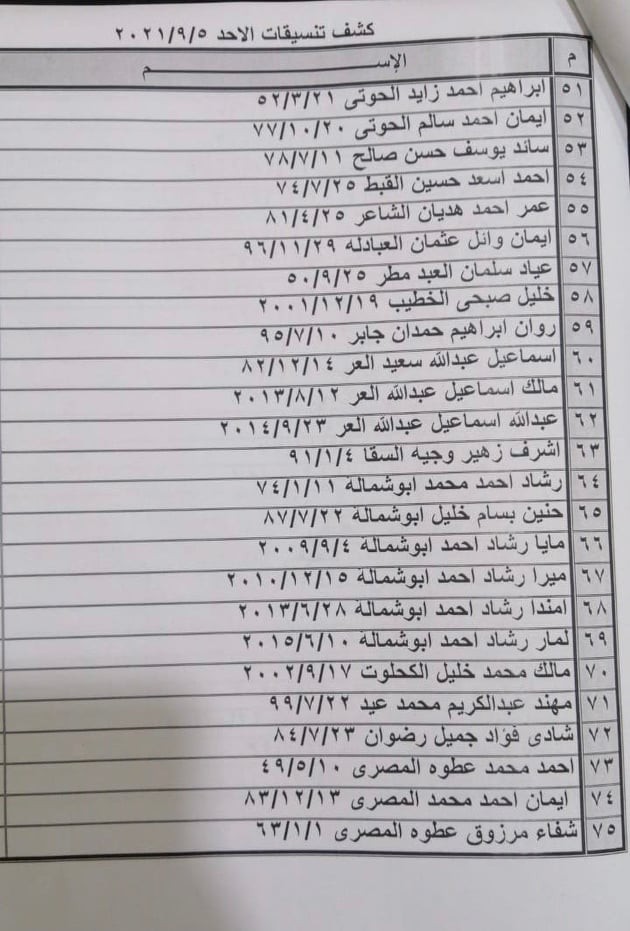 كشف تنسيقات الاحد ٢٠٢١/٩/٥
م الإســـــــــــــــم
٥١ ابراهيم احمد زايد الحوتى ٥٢/٣/٢١
٥٢ ايمان احمد سالم الحوتى ٧٧/١٠/٢٠
٥٣ سائد يوسف حسن صالح ٧٨/٧/١١
٥٤ احمد اسعد حسين القبط ٧٤/٧/٢٥
٥٥ عمر احمد هديان الشاعر ٨١/٤/٢٥
٥٦ ايمان وائل عثمان العبادله ٩٦/١١/٢٩
٥٧ عياد سلمان العبد مطر ٥٠/٩/٢٥
٥٨ خليل صبحى الخطيب ٢٠٠١/١٢/١٩
٥٩ روان ابراهيم حمدان جابر ٩٥/٧/١٠
٦٠ اسماعيل عبدالله سعيد العر ٨٢/١٢/١٤
٦١ مالك اسماعيل عبدالله العر ٢٠١٣/٨/١٢
٦٢ عبدالله اسماعيل عبدالله العر ٢٠١٤/٩/٢٣
٦٣ اشرف زهير وجيه السقا ٩١/١/٤
٦٤ رشاد احمد محمد ابوشمالة ٧٤/١/١١
٦٥ حنين بسام خليل ابوشمالة ٨٧/٧/٢٢
٦٦ مايا رشاد احمد ابوشمالة ٢٠٠٩/٩/٤
٦٧ ميرا رشاد احمد ابوشمالة ٢٠١٠/١٢/١٥
٦٨ امندا رشاد احمد ابوشمالة ٢٠١٣/٦/٢٨
٦٩ لمار رشاد احمد ابوشمالة ٢٠١٥/٦/١٠
٧٠ مالك محمد خليل الكحلوت ٢٠٠٢/٩/١٧
٧١ مهند عبدالكريم محمد عيد ٩٩/٧/٢٢
٧٢ شادى فؤاد جميل رضوان ٨٤/٧/٢٣
٧٣ احمد محمد عطوه المصرى ٤٩/٥/١٠
٧٤ ايمان احمد محمد المصرى ٨٣/١٢/١٣
٧٥ شفاء مرزوق عطوه المصرى ٦٣/١/١